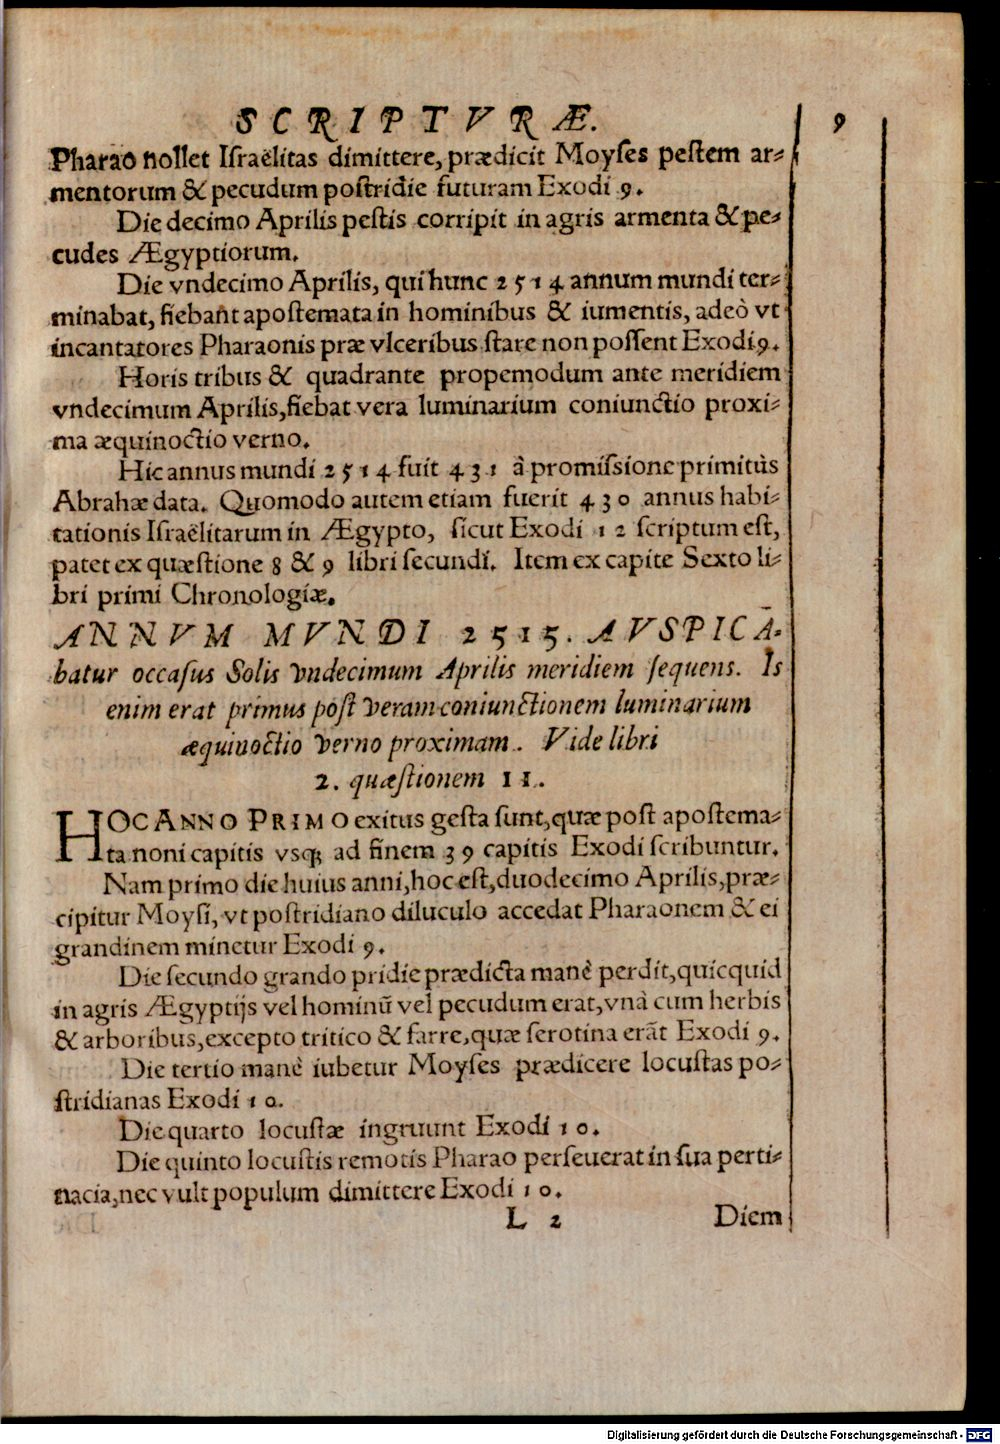 SCRIPTVRÆ. 9
Pharao nollet Iſraëlitas dimittere, prædicit Moyſes peſtem ar⸗
mentorum & pecudum poſtridie futuram Exodi 9.
Die decimo Aprilis peſtis corripit in agris armenta & pe⸗
cudes Ægyptiorum.
Die vndecimo Aprilis, qui hunc 2514 annum mundi ter⸗
minabat, fiebant apoſtemata in hominibus & iumentis, adeò vt
incantatores Pharaonis præ vlceribus ſtare non poſſent Exodi 9.
Horis tribus & quadrante propemodum ante meridiem
vndecimum Aprilis, fiebat vera luminarium coniunctio proxi⸗
ma æquinoctio verno.
Hic annus mundi 2514 fuit 431 à promiſsione primitùs
Abrahæ data. Quomodo autem etiam fuerit 430 annus habi⸗
tationis Iſraëlitarum in Ægypto, ſicut Exodi 12 ſcriptum eſt,
patet ex quæſtione 8 & 9 libri ſecundi. Item ex capite Sexto li⸗
bri primi Chronologiæ.
ANNVM MVNDI 2515. AVSPICĀ⸗
batur occaſus Solis vndecimum Aprilis meridiem ſequens. Is
enim erat primus poſt veram coniunctionem luminarium
æquinoctio verno proximam. Vide libri
2. quæſtionem 11.
HOC ANNO PRIMO exitus geſta ſunt, quæ poſt apoſtema⸗
ta noni capitis vsq; ad finem 39 capitis Exodi ſcribuntur.
Nam primo die huius anni, hoc eſt, duodecimo Aprilis, præ⸗
cipitur Moyſi, vt poſtridiano diluculo accedat Pharaonem & ei
grandinem minetur Exodi 9.
Die ſecundo grando pridie prædicta manè perdit, quicquid
in agris Ægyptijs vel hominū vel pecudum erat, vnà cum herbis
& arboribus, excepto tritico & farre, quæ ſerotina erāt Exodi 9.
Die tertio manè iubetur Moyſes prædicere locuſtas po⸗
ſtridianas Exodi 10.
Die quarto locuſtæ ingruunt Exodi 10.
Die quinto locuſtis remotis Pharao perſeuerat in ſua perti⸗
nacia, nec vult populum dimittere Exodi 10.
L 2 Diem
Digitalisierung gefördert durch die Deutsche Forschungsgemeinschaft - DFG